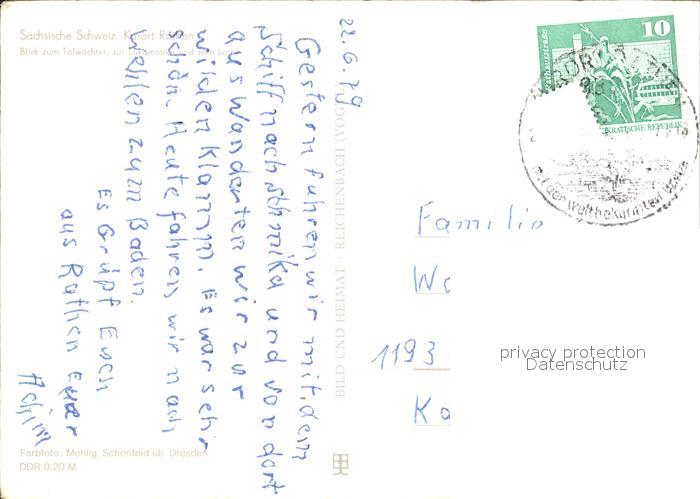 Sächsische Schweiz. Kurort Rathen
Blick zum Talwächter, zur Lokomotive und zum Lamm
22.6.79
Gestern fuhren wir mit dem
Schiff nach Schmilka und von dort
aus wanderten wir zur
wilden Klamm. Es war sehr
schön. Heute fahren wir nach
Wehlen zum Baden.
Es Grüßt Euch
aus Rathen Euer
Achim
BILD UND HEIMAT · REICHENBACH (VOGTL
10
Rathausstraße
KRATISCHE REPUBLIK
KURORT
mit der weltbekannten
Familie
We
1193
Ko
privacy protection
Datenschutz
Farbfoto: Mehlig, Schönfeld üb. Dresden
DDR 0,20 M